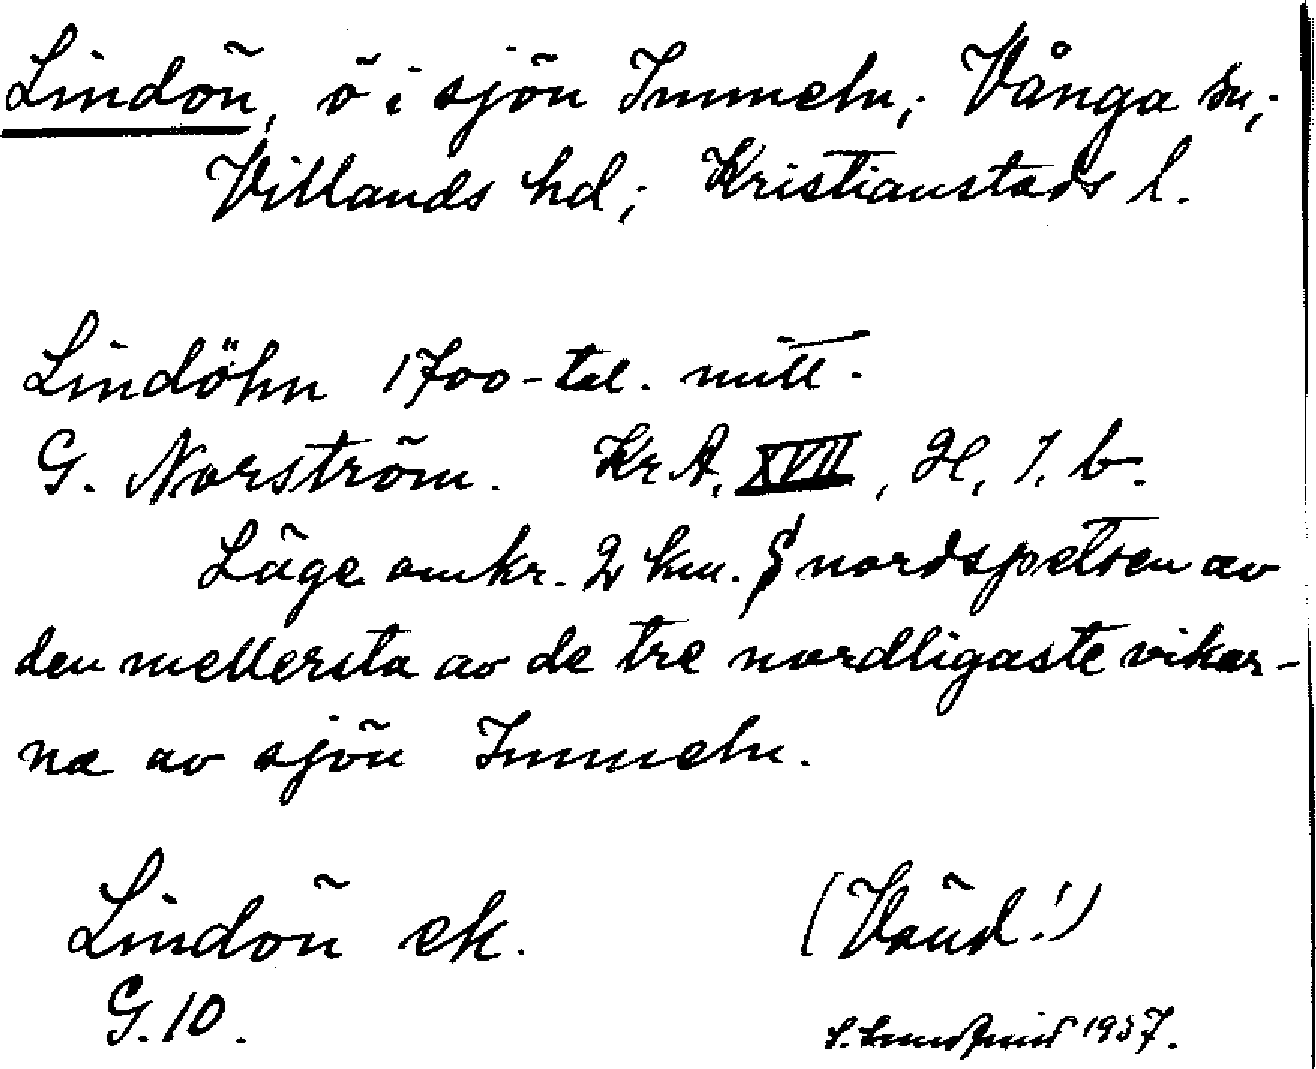 Lindön, ö i sjön Immeln; Vånga sn;
Villands hd; Kristianstads l.
Lindöhn 1700-tal. mitt.
G. Norström. KrA, XVII, H, 7. b.
Läge omkr. 2 km. S nordspetsen av
den mellersta av de tre nordligaste vikar-
na av sjön Immeln.
Lindön ek. (Vänd!)
G. 10. 1937.